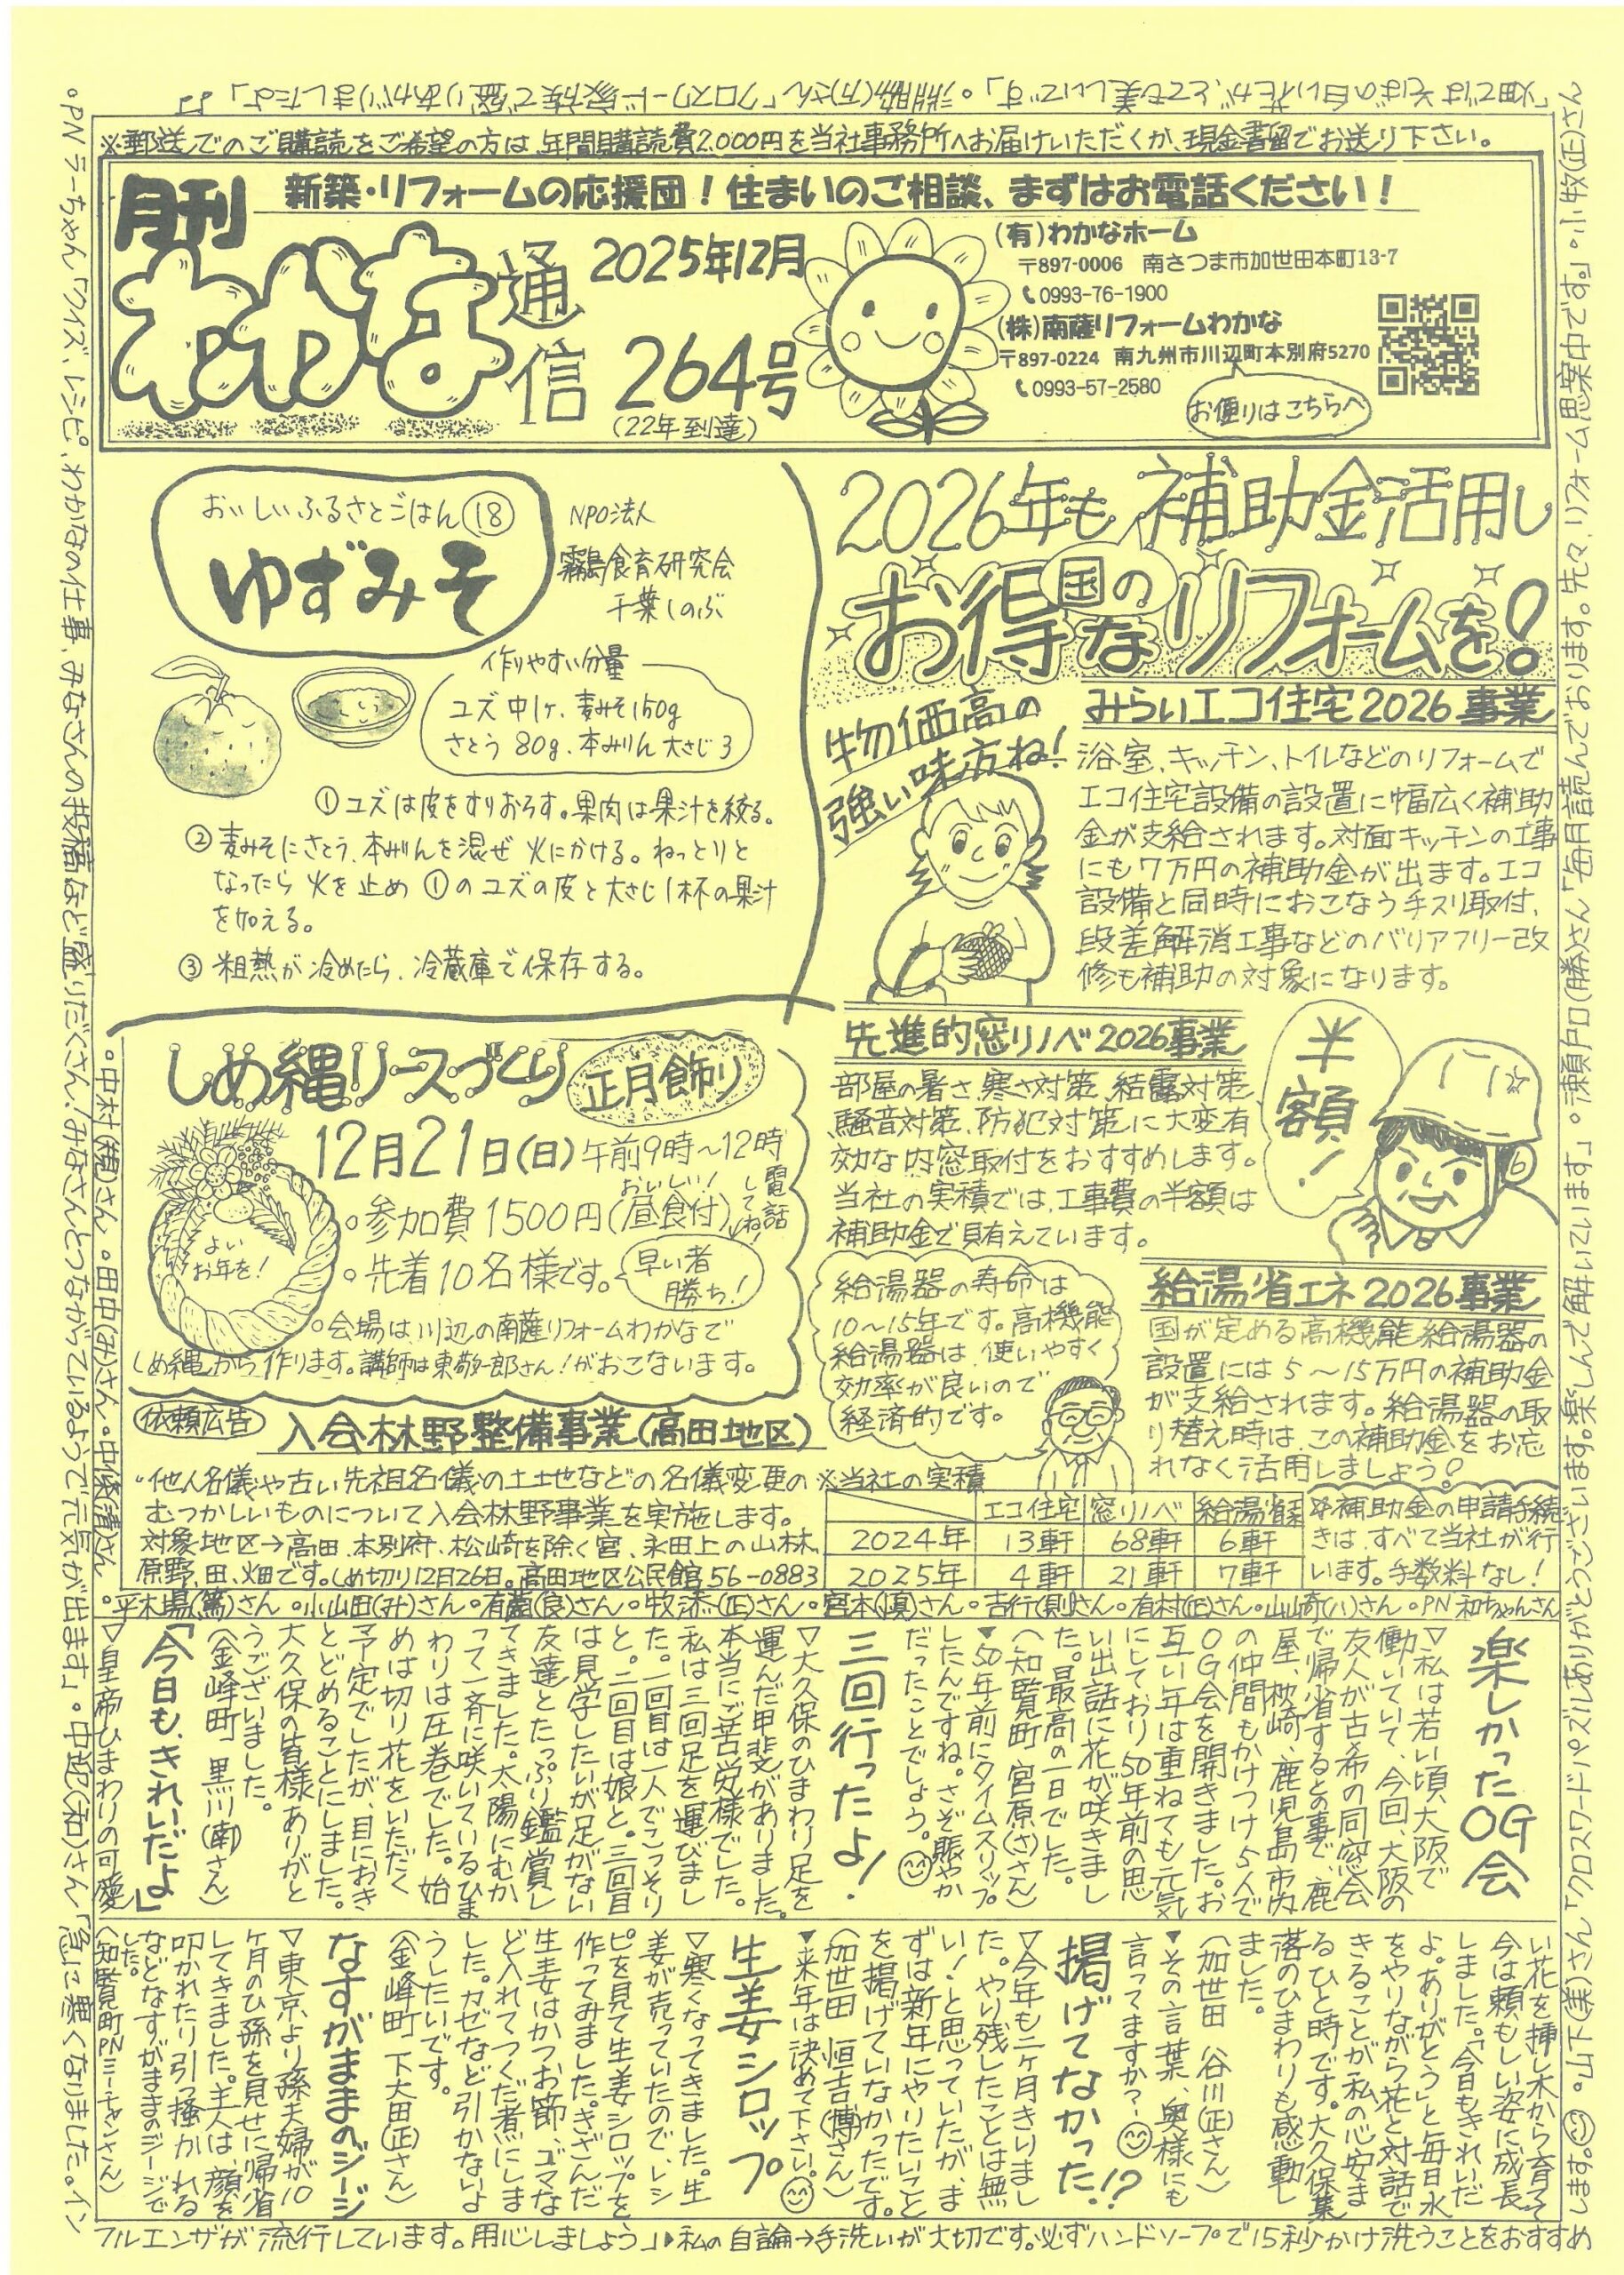 ※郵送でのご購読をご希望の方は、年間購読費2,000円を当社事務所へお届けいただくか、現金書留でお送り下さい。
月刊
新築・リフォームの応援団!住まいのご相談、まずはお電話ください!
わかな通信
2025年12月
264号
(22年到達)
(有)わかなホーム
〒897-0006 南さつま市加世田本町13-7
0993-76-1900
(株)南薩リフォームわかな
〒897-0224 南九州市川辺町本別府5270
0993-57-2580
お便りはこちらへ
おいしいふるさとごはん⑱
ゆずみそ
NPO法人
霧島食育研究会
千葉しのぶ
作りやすい分量
ユズ 中1ヶ、麦みそ150g
さとう 80g、本みりん 大さじ3
①ユズは皮をすりおろす。果肉は果汁を絞る。
②麦みそにさとう、本みりんを混ぜ 火にかける。ねっとりと
なったら 火を止め ①のユズの皮と大さじ1杯の果汁
を加える。
③粗熱が冷めたら、冷蔵庫で保存する。
2026年も、補助金活用し
国の
お得なリフォームを!
物価高の
強い味方ね!
みらいエコ住宅2026事業
浴室、キッチン、トイレなどのリフォームで
エコ住宅設備の設置に幅広く補助
金が支給されます。対面キッチンの工事
にも7万円の補助金が出ます。エコ
設備と同時におこなう手スリ取付、
段差解消工事などのバリアフリー改
修も補助の対象になります。
先進的窓リノベ2026事業
部屋の暑さ、寒さ対策、結露対策、
騒音対策、防犯対策に大変有
効な内窓取付をおすすめします。
当社の実積では、工事費の半額は
補助金で賄えています。
半額!
給湯省エネ2026事業
国が定める高機能給湯器の
設置には5〜15万円の補助金
が支給されます。給湯器の取
り替え時は、この補助金をお忘
れなく活用しましょう!
給湯器の寿命は
10〜15年です。高機能
給湯器は、使いやすく
効率が良いので
経済的です。
しめ縄リースづくり 正月飾り
12月21日(日)午前9時〜12時
よい
お年を!
おいしい!
○参加費1500円(昼食付)
電話
してね!
○先着10名様です。
早い者
勝ち!
○会場は川辺の南薩リフォームわかなで
しめ縄から作ります。講師は東敬一郎さん!がおこないます。
依頼広告
入会林野整備事業(高田地区)
○他人名儀や古い先祖名儀の土地などの名儀変更の
むつかしいものについて入会林野事業を実施します。
対象地区→高田、本別府、松崎を除く宮、永田上の山林、
原野、田、畑です。しめ切り12月26日。高田地区公民館56-0883
※当社の実積
エコ住宅 窓リノベ 給湯省エネ
2024年 13軒 68軒 6軒
2025年 4軒 21軒 7軒
※補助金の申請手続
きは、すべて当社が行
います。手数料なし!
○平木場(篤)さん ○小山田(み)さん ○有薗(良)さん ○牧添(正)さん ○宮本(慎)さん ○吉行(則)さん ○有村(正)さん ○山崎(八)さん ○PN 和ちゃんさん
楽しかったOG会
▽私は若い頃大阪で
働いていて、今回、大阪の
友人が古希の同窓会
で帰省するとの事で、鹿
屋、枕崎、鹿児島市内
の仲間もかけつけ5人で
OG会を開きました。お
互い年は重ねても元気
にしており50年前の思
い出話に花が咲きまし
た。最高の一日でした。
(知覧町 宮原(さ)さん)
▼50年前にタイムスリップ
したんですね。さぞ賑やか
だったことでしょう。
三回行ったよ!
▽大久保のひまわり足を
運んだ甲斐がありました。
本当にご苦労様でした。
私は三回足を運びまし
た。一回目は一人でこっそり
と。二回目は娘と。三回目
は見学したいが足がない
友達とたっぷり鑑賞し
てきました。太陽にむか
って一斉に咲いているひま
わりは圧巻でした。始
めは切り花をいただく
予定でしたが、目におき
とどめることにしました。
大久保の皆様ありがと
うございました。
(金峰町 黒川(南)さん)
「今日も、きれいだよ」
▽皇帝ひまわりの可愛
い花を挿し木から育て
今は頼もしい姿に成長
しました。「今日もきれいだ
よ。ありがとう」と毎日水
をやりながら花と対話で
きることが私の心安ま
るひと時です。大久保集
落のひまわりも感動し
ました。
(加世田 谷川(正)さん)
▼その言葉、奥様にも
言ってますか?
掲げてなかった!?
▽今年も二ヶ月きりまし
た。やり残したことは無
い!と思っていたが、ま
ずは新年にやりたいこと
を掲げていなかったです。
(加世田 恒吉(博)さん)
▼来年は決めて下さい。
生姜シロップ
▽寒くなってきました。生
姜が売っていたので、レシ
ピを見て生姜シロップを
作ってみました。きざんだ
生姜はかつお節、ゴマな
ど入れてつくだ煮にしま
した。カゼなど引かないよ
うしたいです。
(金峰町 下大田(正)さん)
なすがままのジージ
▽東京より孫夫婦が10
ヶ月のひ孫を見せに帰省
してきました。主人は、顔を
叩かれたり引っ掻かれる
などなすがままのジージで
した。
(知覧町PNミーチャンさん)
「畑ではそばの白い花が、とても美しいです」。「クロスワード家族で盛りあがりました」
○小牧(正)さん「毎月読んでおります。先々、リフォーム思案中です。」○瀬戸口(勝)さん「クロスワードパズルありがとうございます。楽しんで解いています」
○PNラーちゃん「クイズ、レシピ、わかなの仕事、みなさんの投稿など盛りだくさん!みなさんとつながっているようで元気が出ます」
○田中(み)さん
「急に寒くなりました。イン
フルエンザが流行しています。用心しましょう」▶私の自論→手洗いが大切です。必ずハンドソープで15秒かけ洗うことをおすすめ
します。